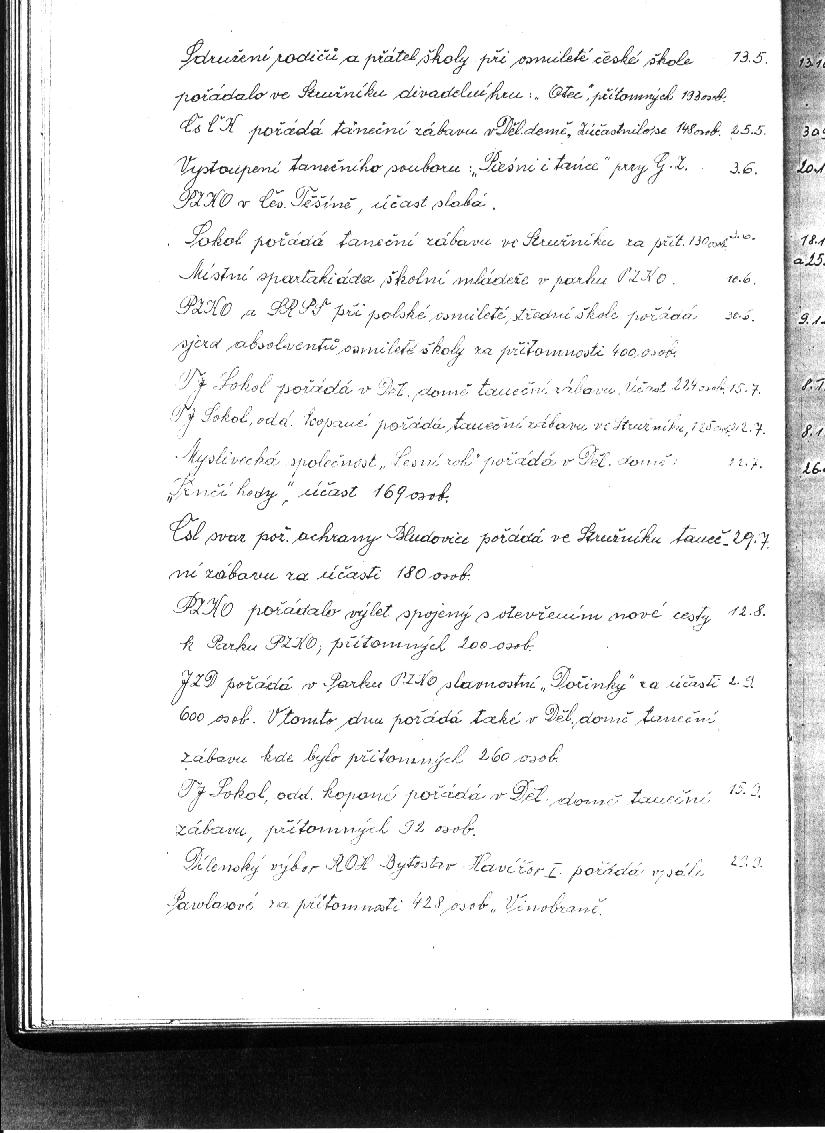 Sdružení rodičů a přátel školy při osmileté české škole 13.5.
pořádalo ve Stružníku divadelní hru: „Otec“, přítomných 193 osob.
Čs ČK pořádá taneční zábavu v Děl. domě, zúčastnilo se 148 osob. 25.5.
Vystoupení tanečního souboru: „Pieśni i tańce“ przy G. Z. 3.6.
PZKO v Čes. Těšíně, účast slabá.
Sokol pořádá taneční zábavu ve Stružníku za přít. 130 osob
Místní spartakiáda školní mládeže v parku PZKO. 10.6.
PZKO a SRPŠ při polské osmileté, střední škole pořádá 30.6.
sjezd absolventů osmileté školy za přítomnosti 400 osob.
TJ Sokol pořádá v Děl. domě taneční zábavu. Účast 224 osob. 15.7.
TJ Sokol, odd. kopané pořádá taneční zábavu ve Stružníku, 125 osob
Myslivecká společnost „Lesní roh“ pořádá v Děl. domě
„Kančí hody“, účast 169 osob.
Čsl svaz pož. ochrany Bludovice pořádá ve Stružníku taneč- 29.7.
ní zábavu za účasti 180 osob.
PZKO pořádalo výlet spojený s otevřením nové cesty 12.8.
k Parku PZKO, přítomných 200 osob.
JZD pořádá v Parku PZKO slavnostní „Dožinky“ za účasti 2.9.
600 osob. V tomto dnu pořádá také v Děl. domě taneční
zábavu kde bylo přítomných 260 osob.
TJ Sokol, odd. kopané pořádá v Děl. domě taneční 15.9.
zábavu, přítomných 92 osob.
Dílenský výbor ROH Bytostav Havířov I. pořádá v sále 29.9.
Pawlasové za přítomnosti 428 osob „Vinobraně.